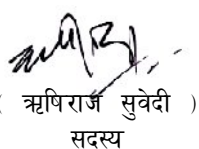 ( ऋषिराज सुवेदी )
सदस्य